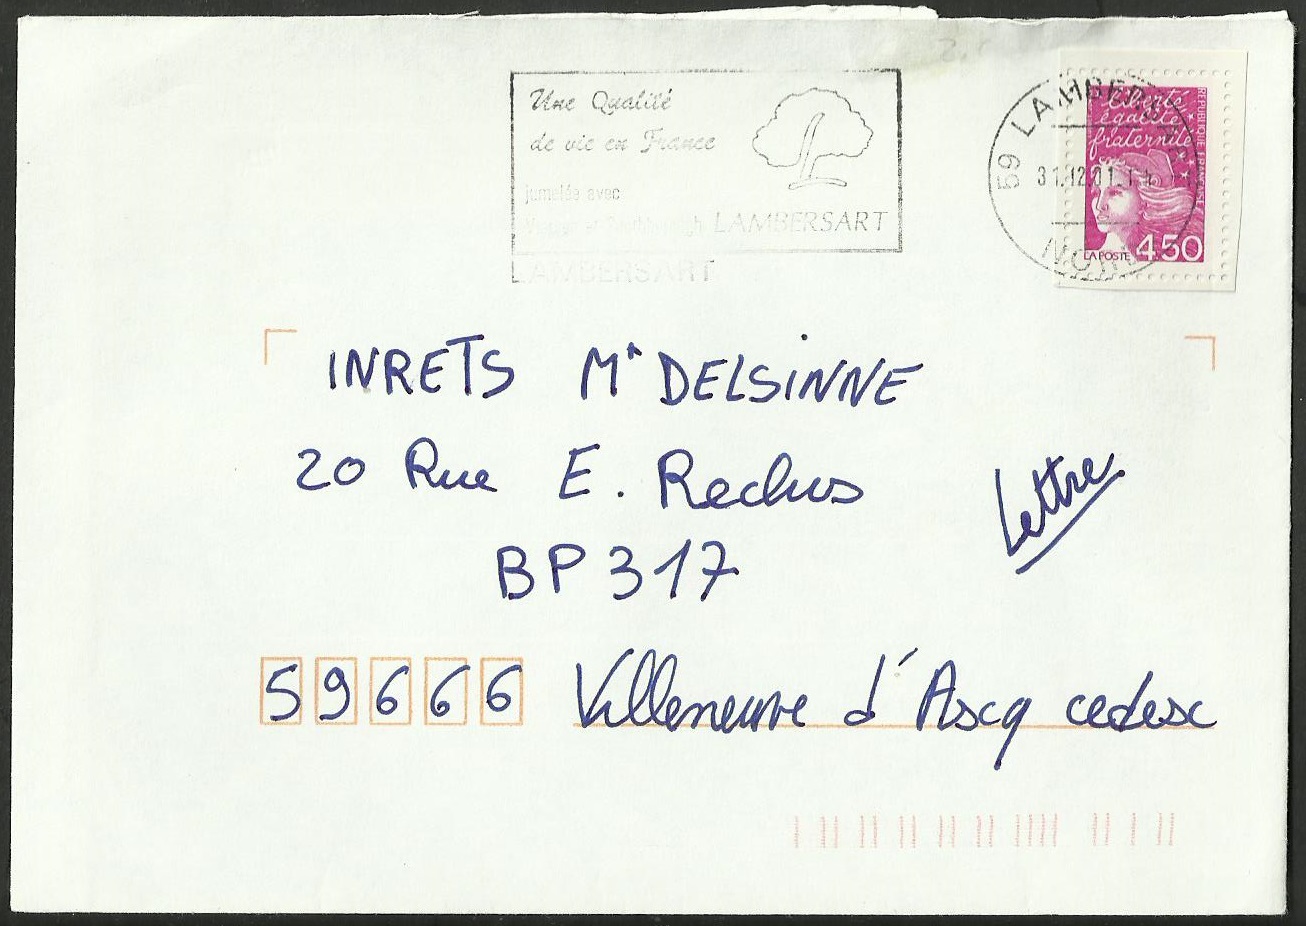 Une Qualité
de vie en France
jumelée avec
LAMBERSART
LAMBERSART
59 LAMBERSART
31.12.01
NORD
Liberté
égalité
fraternité
REPUBLIQUE FRANÇAISE
LA POSTE 4.50
INRETS Mr DELSINNE
20 Rue E. Reclus
Lettre
BP 317
59666 Villeneuve d'Ascq cedesc